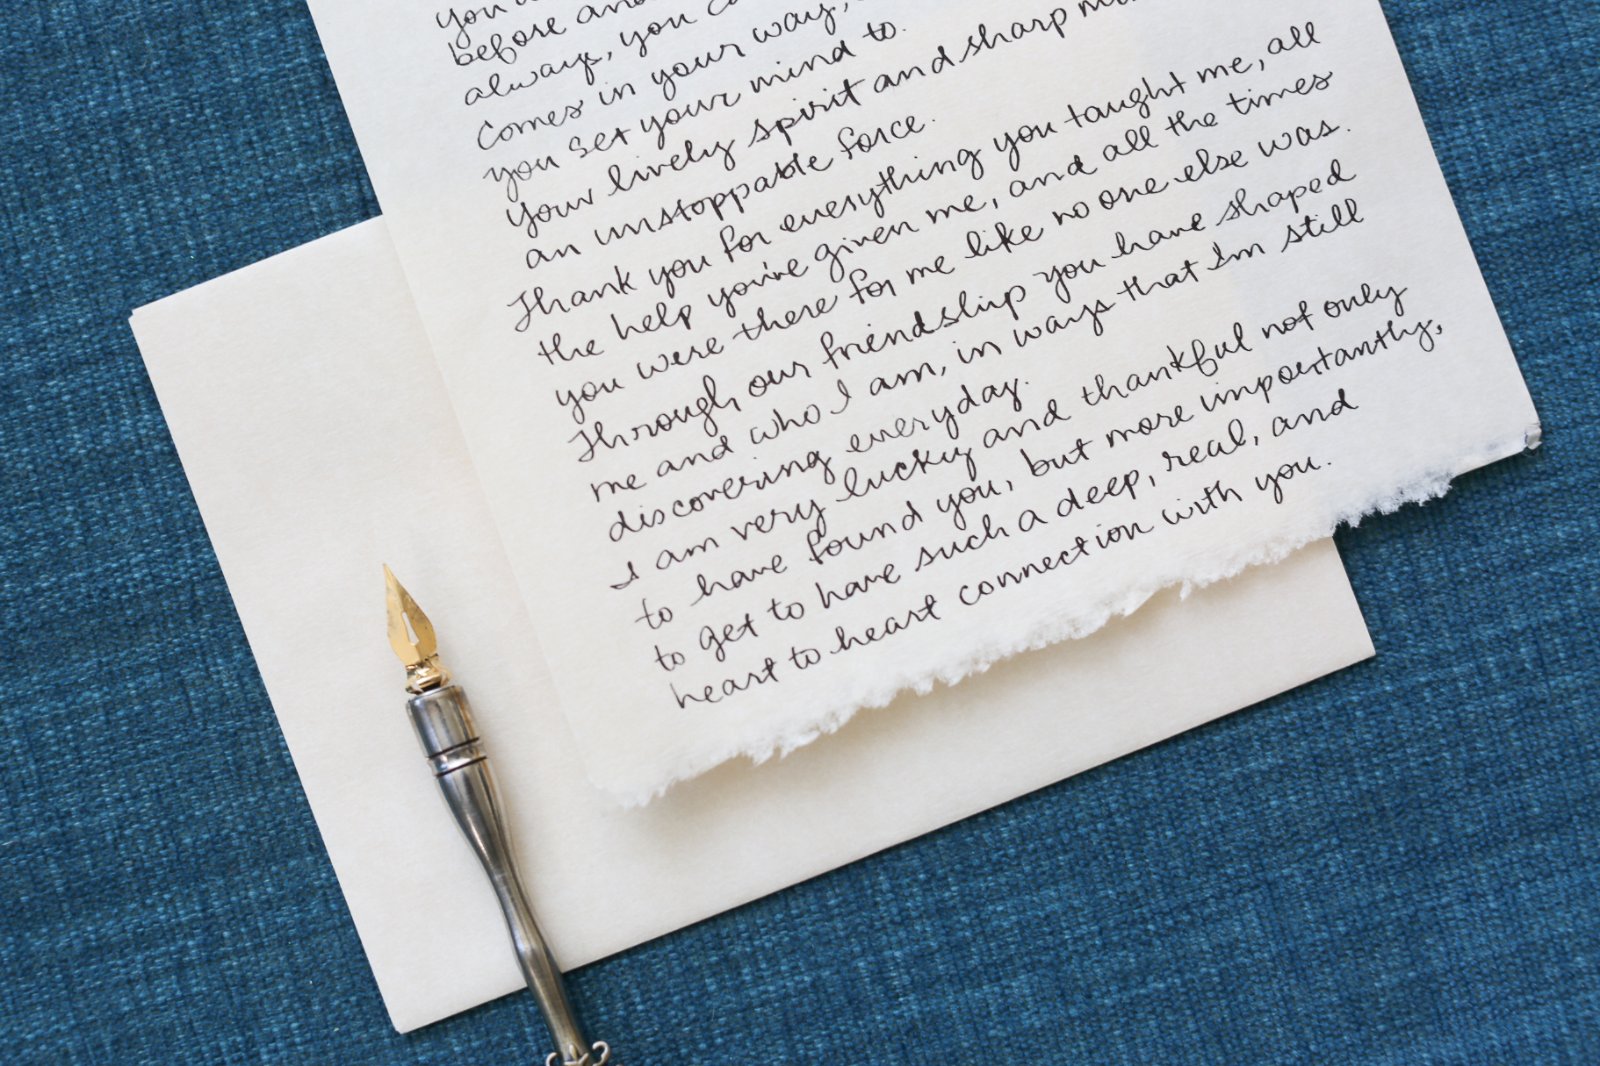 before and
always, you
comes in your way,
you set your mind to.
your lively spirit and sharp
an unstoppable force.
Thank you for everything you taught me, all
the help you've given me, and all the times
you were there for me like no one else was.
Through our friendship you have shaped
me and who I am, in ways that I'm still
discovering everyday.
I am very lucky and thankful not only
to have found you, but more importantly,
to get to have such a deep, real, and
heart to heart connection with you.